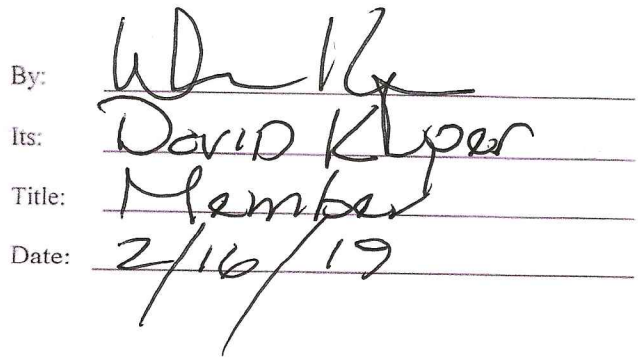 By:
Its: David Klyper
Title: Member
Date: 2/16/19